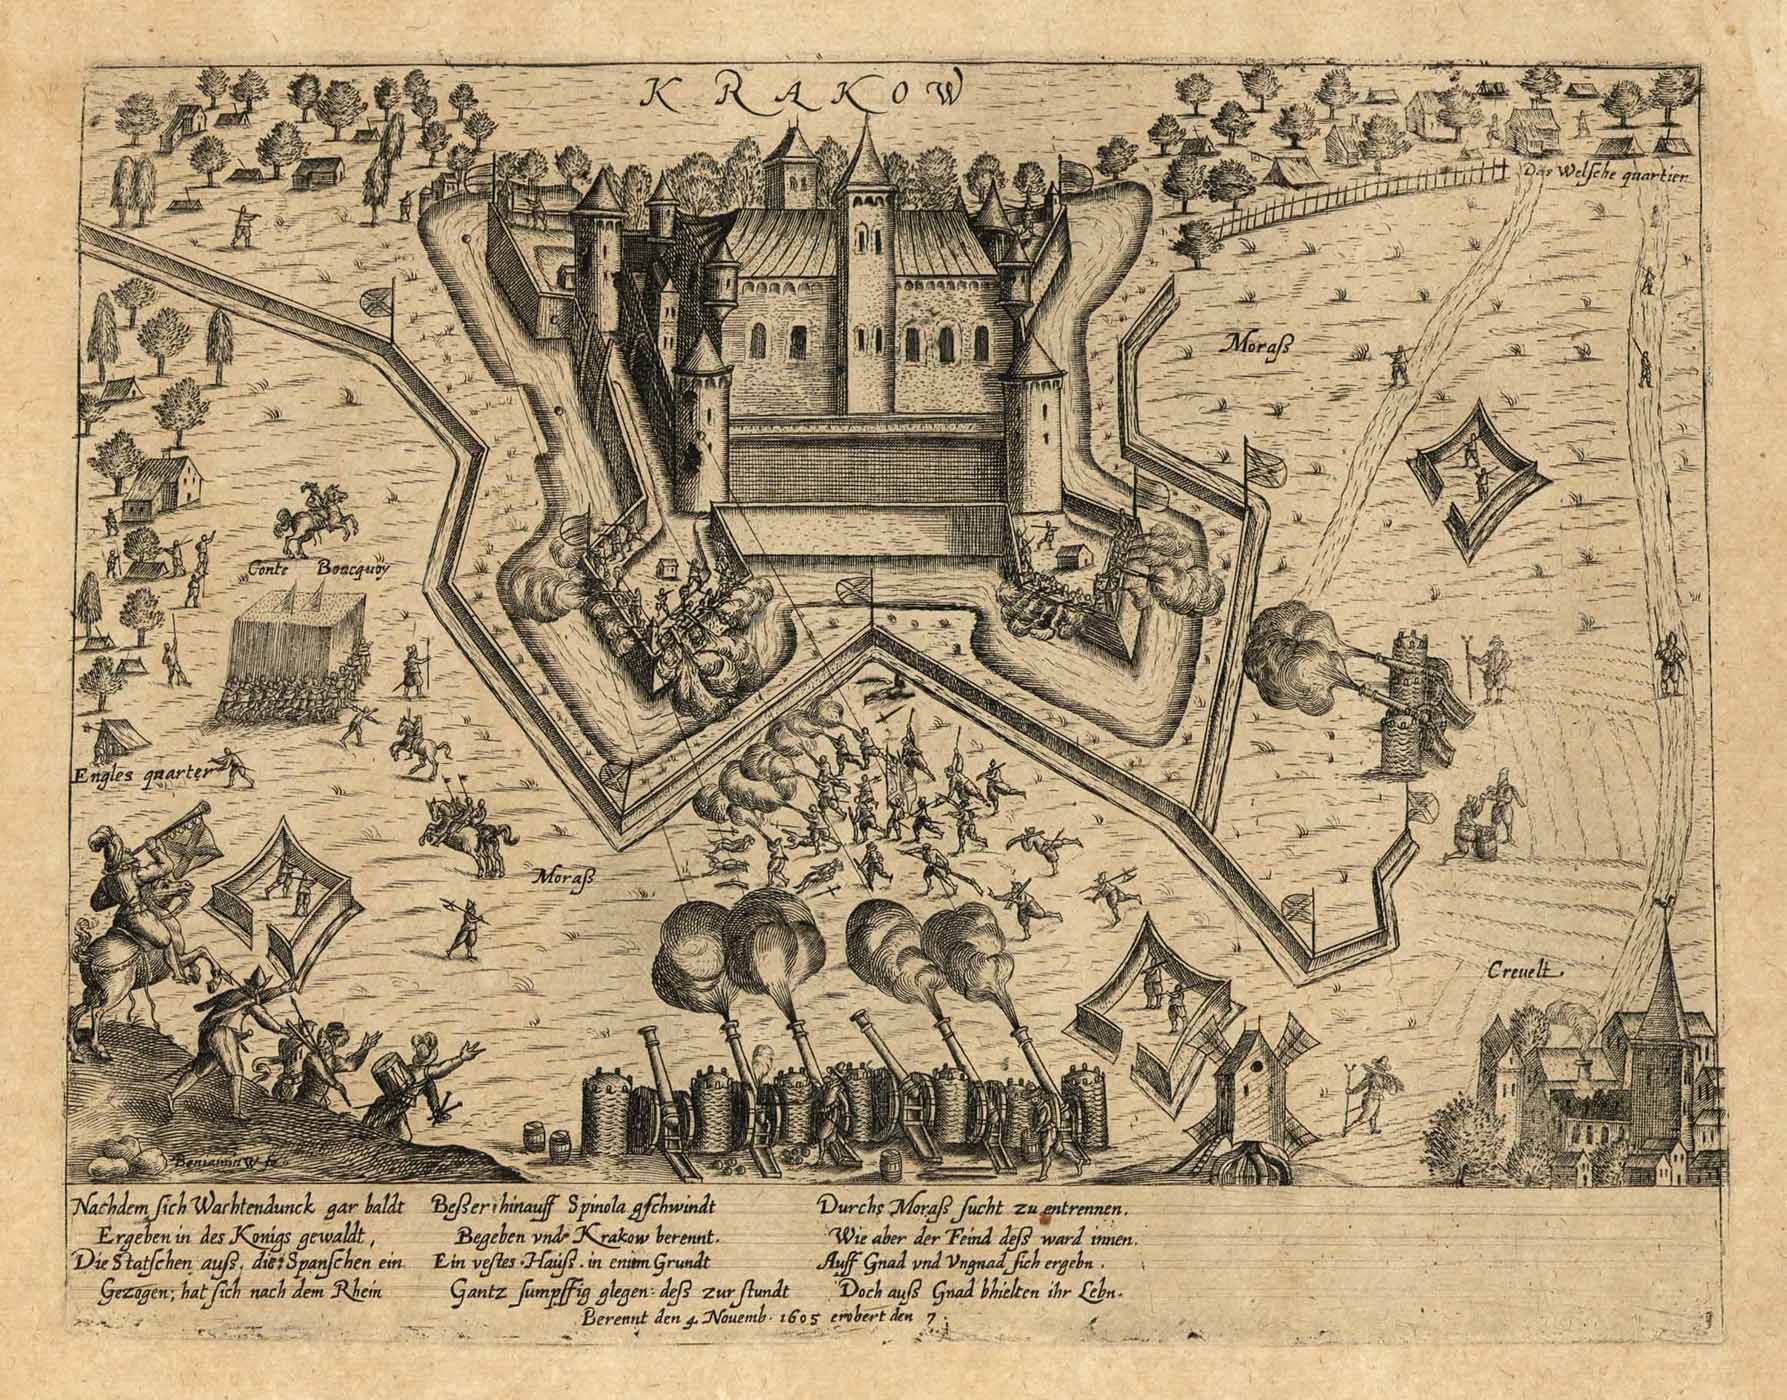 KRAKOW
Das Welsche quartier
Moraß
Conte Boucquoy
Engles quarter
Moraß
Creuelt.
Beniamin W fe
Nachdem sich Wachtendunck gar baldt
Ergeben in des Konigs gewaldt,
Die Statschen auß, die Spanschen ein
Gezogen; hat sich nach dem Rhein
Beßer hinauff Spinola gschwindt
Begeben vnd Krakow berennt.
Ein vestes Hauß. in einem Grundt
Gantz sumpffig glegen: deß zur stundt
Durchs Moraß sucht zu entrennen.
Wie aber der Feind deß ward innen.
Auff Gnad vnd Vngnad sich ergebn.
Doch auß Gnad bhielten ihr Lebn.
Berennt den 4. Nouemb. 1605 erobert den 7.